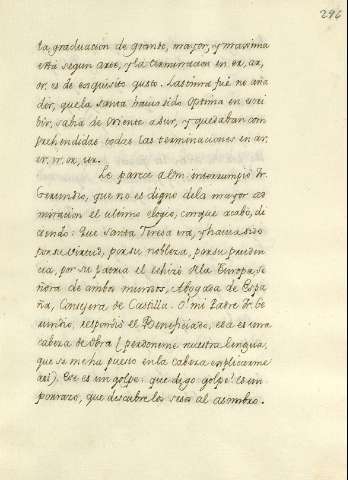 296
la graduacion de grande, mayor, y maxima
está segun arte, y la terminacion en er, ar,
or, es de exquisito gusto. Lastima fué no aña
der, que la Santa havia sido Optima en escri
bir, sabia de Oriente a Sur, y quedaban com
prehendidas todas las terminaciones en ar,
er, ir, or, ur.
Le parece al m. interrumpió fr.
Gerundio, que no es digno de la mayor ad
miracion el ultimo elogio, con que acabó, di
ciendo: Que Santa Teresa era, y havia sido
por su virtud, por su nobleza, por su pruden
cia, por su Patria el echizo de la Europa, Se
ñora de ambos mundos, Abogada de Espa
ña, Consejera de Castilla. O! mi Padre fr. Ge
rundio, respondió el Beneficiado, esa es una
cabeza de Obra (perdoneme nuestra lengua,
que se me ha puesto en la cabeza explicarme
asi). Ese es un golpe: que digo golpe! es un
porrazo, que descubre los sesos al asombro.